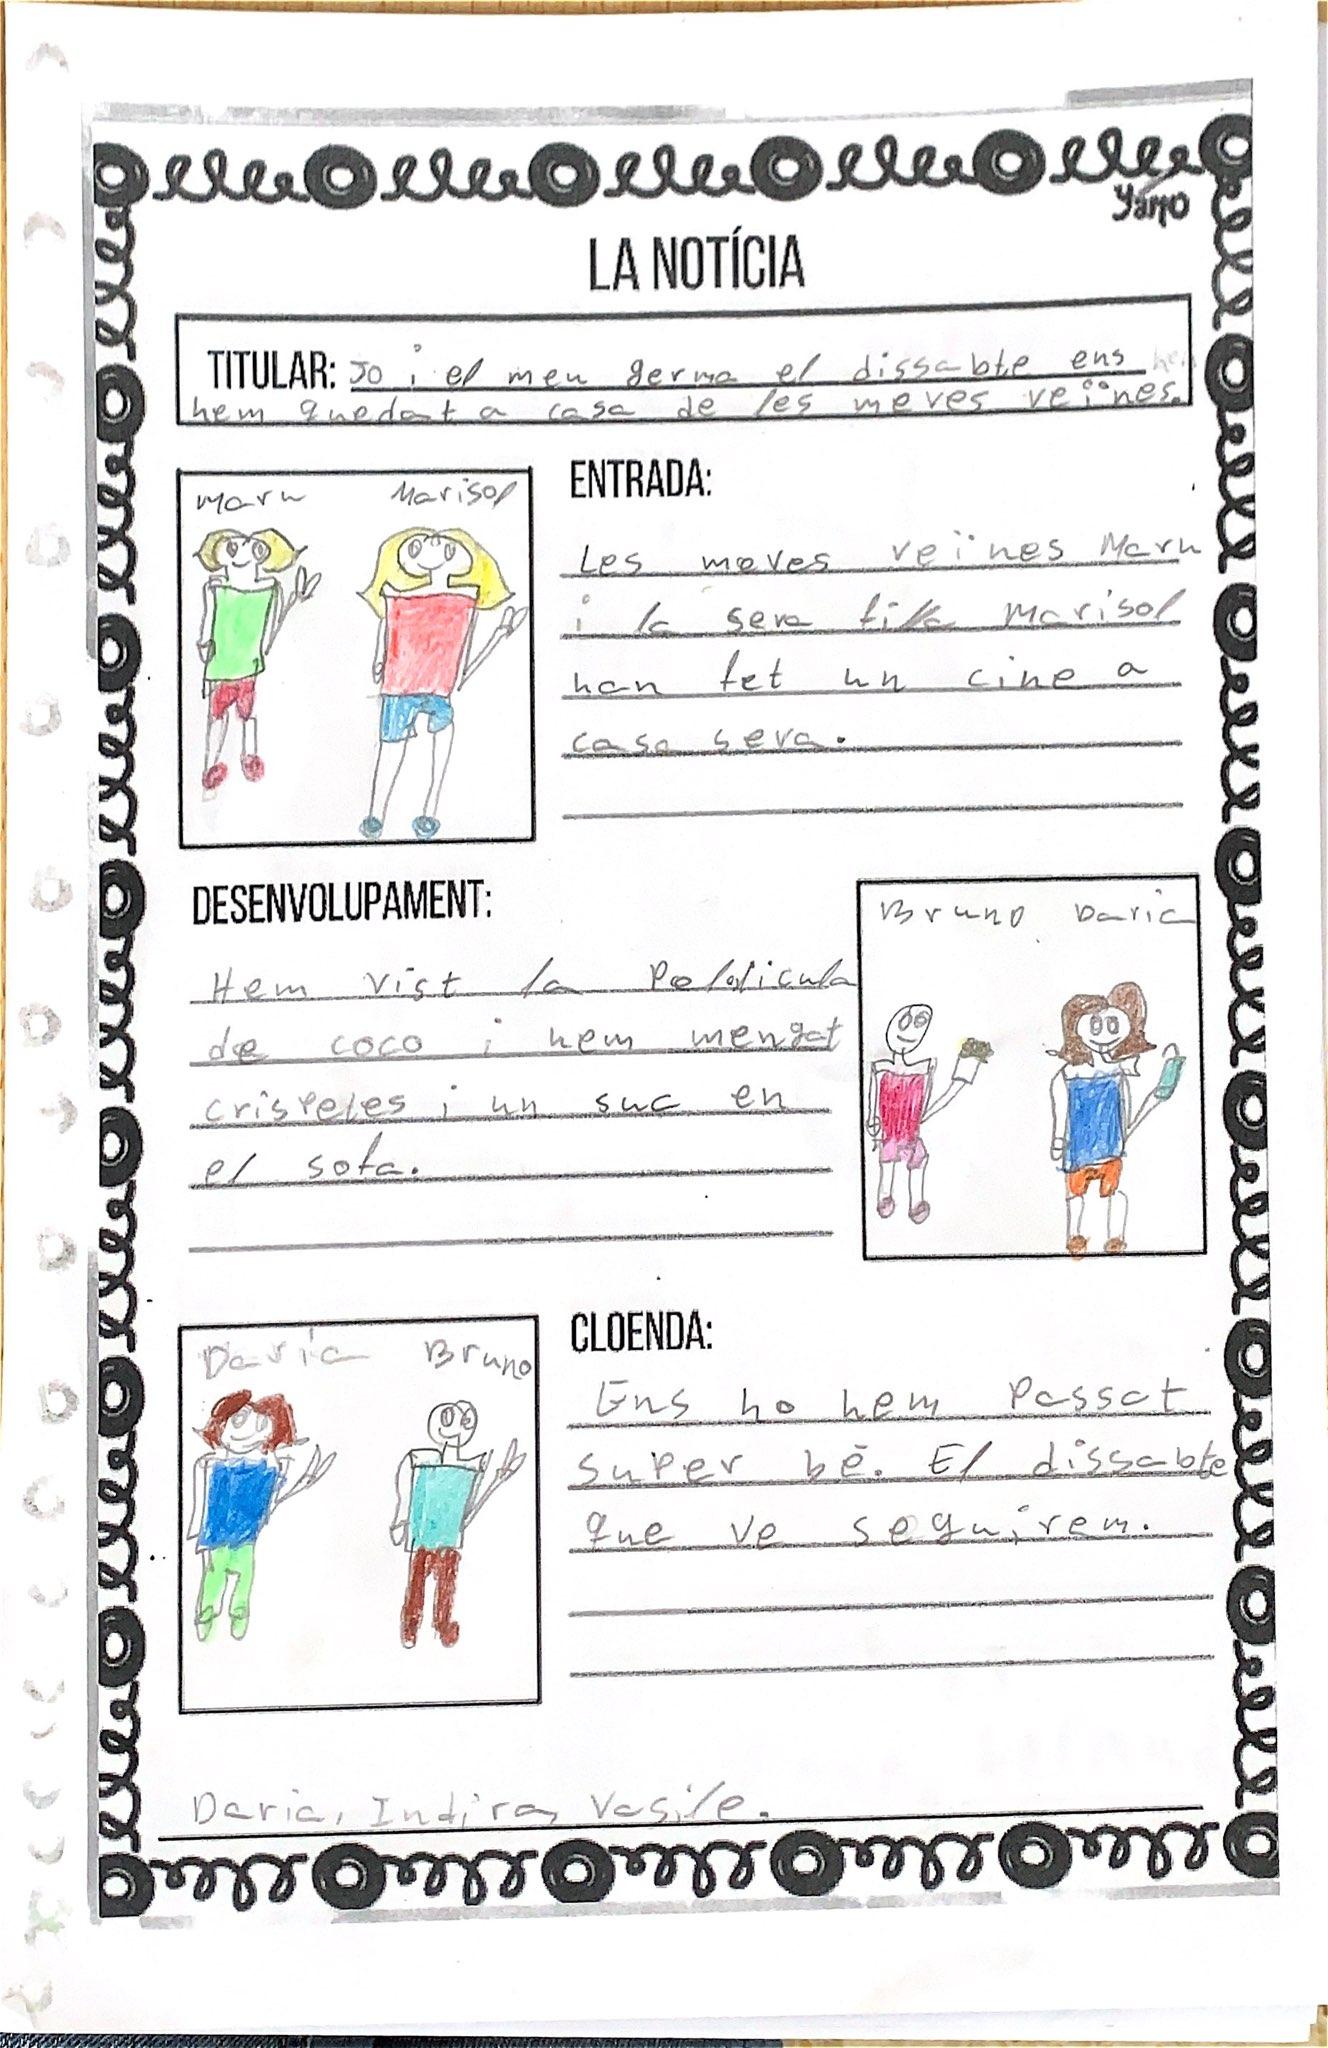 Yamo
LA NOTÍCIA
TITULAR: Jo i el meu germa el dissabte ens
hem quedat a casa de les meves veïnes.
Maru Marisol
ENTRADA:
Les meves veïnes Maru
i la seva filla Marisol
han fet un cine a
casa seva.
DESENVOLUPAMENT:
Bruno Daria
Hem vist la
de coco i hem menjat
crispeles i un suc en
el sofa.
Daria Bruno
CLOENDA:
Ens ho hem passat
super bé. El dissabte
que ve seguirem.
Daria, Indira, Vasile.